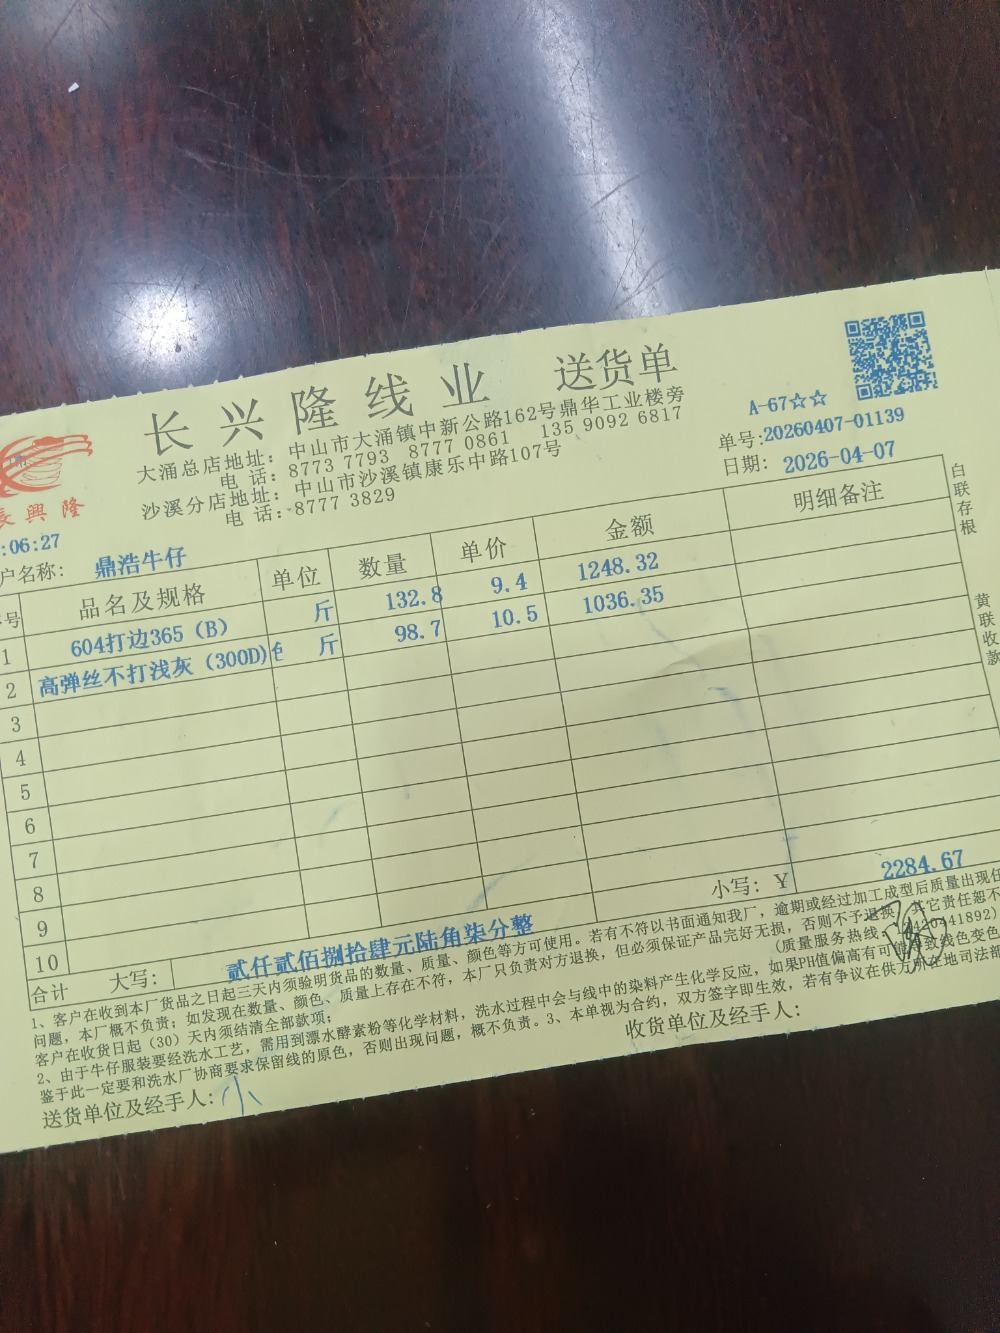 长兴隆线业 送货单
大涌总店地址：中山市大涌镇中新公路162号鼎华工业楼旁
电 话：8773 7793 8777 0861 135 9092 6817
沙溪分店地址：中山市沙溪镇康乐中路107号
电 话：8777 3829
長興隆
A-67☆☆
单号:20260407-01139
日期: 2026-04-07
:06:27
户名称: 鼎浩牛仔
号 品名及规格 单位 数量 单价 金额 明细备注
1 604打边365（B） 斤 132.8 9.4 1248.32
2 高弹丝不打浅灰（300D)色 斤 98.7 10.5 1036.35
3
4
5
6
7
8
9
10
合计 大写: 贰仟贰佰捌拾肆元陆角柒分整 小写: Y 2284.67
1、客户在收到本厂货品之日起三天内须验明货品的数量、质量、颜色等方可使用。若有不符以书面通知我厂，逾期或经过加工成型后质量出现任
问题，本厂概不负责；如发现在数量、颜色、质量上存在不符，本厂只负责对方退换，但必须保证产品完好无损，否则不予退换，其它责任恕不
客户在收货日起（30）天内须结清全部款项； (质量服务热线: 2420441892)
2、由于牛仔服装要经洗水工艺，需用到漂水酵素粉等化学材料，洗水过程中会与线中的染料产生化学反应，如果PH值偏高有可能导致线色变色
鉴于此一定要和洗水厂协商要求保留线的原色，否则出现问题，概不负责。3、本单视为合约，双方签字即生效，若有争议在供方所在地司法部
送货单位及经手人: 小 收货单位及经手人:
白联存根
黄联收款